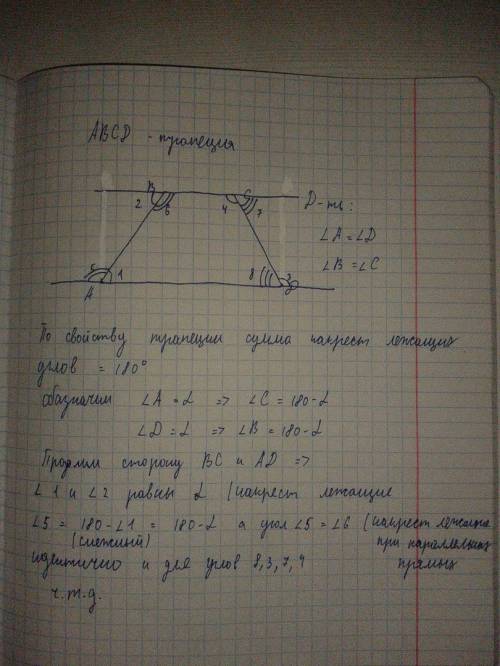 ABCD - трапеция
B C
2 6 4 7
Д-ть:
∠A = ∠D
∠B = ∠C
5 1 8 3
A D
По свойству трапеции сумма накрест лежащих
углов = 180°
обазначим ∠A = α => ∠C = 180-α
∠D = α => ∠B = 180-α
Продлим сторону BC и AD =>
∠1 и ∠2 равны α (накрест лежащие
∠5 = 180-∠1 = 180-α а угол ∠5 = ∠6 (накрест лежащие
(смежный) при параллельных
идентично и для углов 8,3,7,4 прямых
ч.т.д.